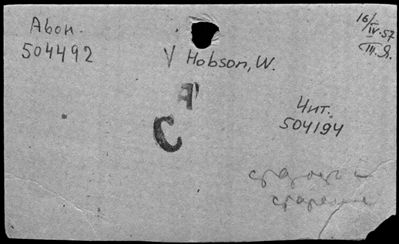 Абон.
504492
V Hobson, W.
16/IV-57
Ш.Я.
А
С
Чит.
504194